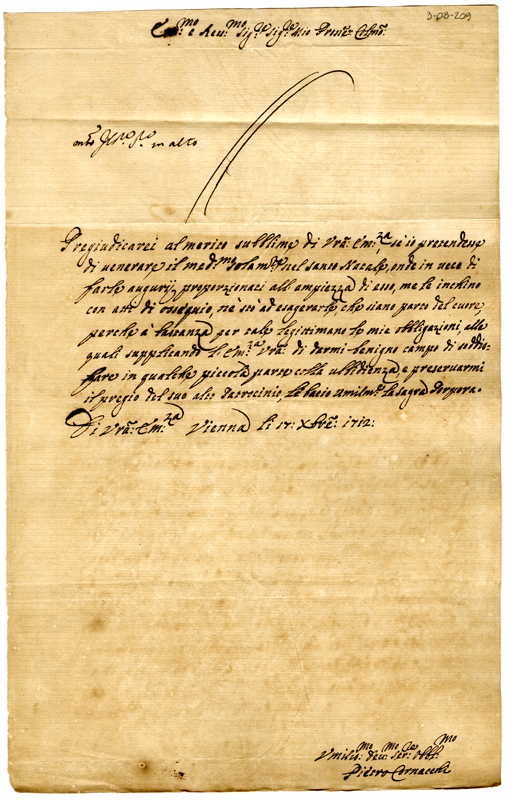 3-08-209
Em.mo e Rev.mo Sig.r Sig.r Mio Pron.e Colmo.
in alto
Pregiudicarei al merico sublime di Vra: Em.za se io pretendesse
di venerare il med.mo solam.te nel santo Natale, onde in vece di
farle augurij proporzionati all ampiezza di esso, me le inchino
con atti di ossequio, ne stò ad esagerarle che siano parto del cuore
perche à bastanza per tale legittimano le mie obbligazioni, alle
quali supplicando l'Em.za Vra: di darmi benigno campo di soddis-
fare in qualche piccola parte colla ubbidienza e preservarmi
il pregio del suo alto Patrocinio, le bacio umilmte. la sagra Porpora.
Di Vra: Em.za Vienna li 17: Xbre: 1712:
Umiliss.mo Dev.mo Ser.re Obbl.mo
Pietro Cornacchi